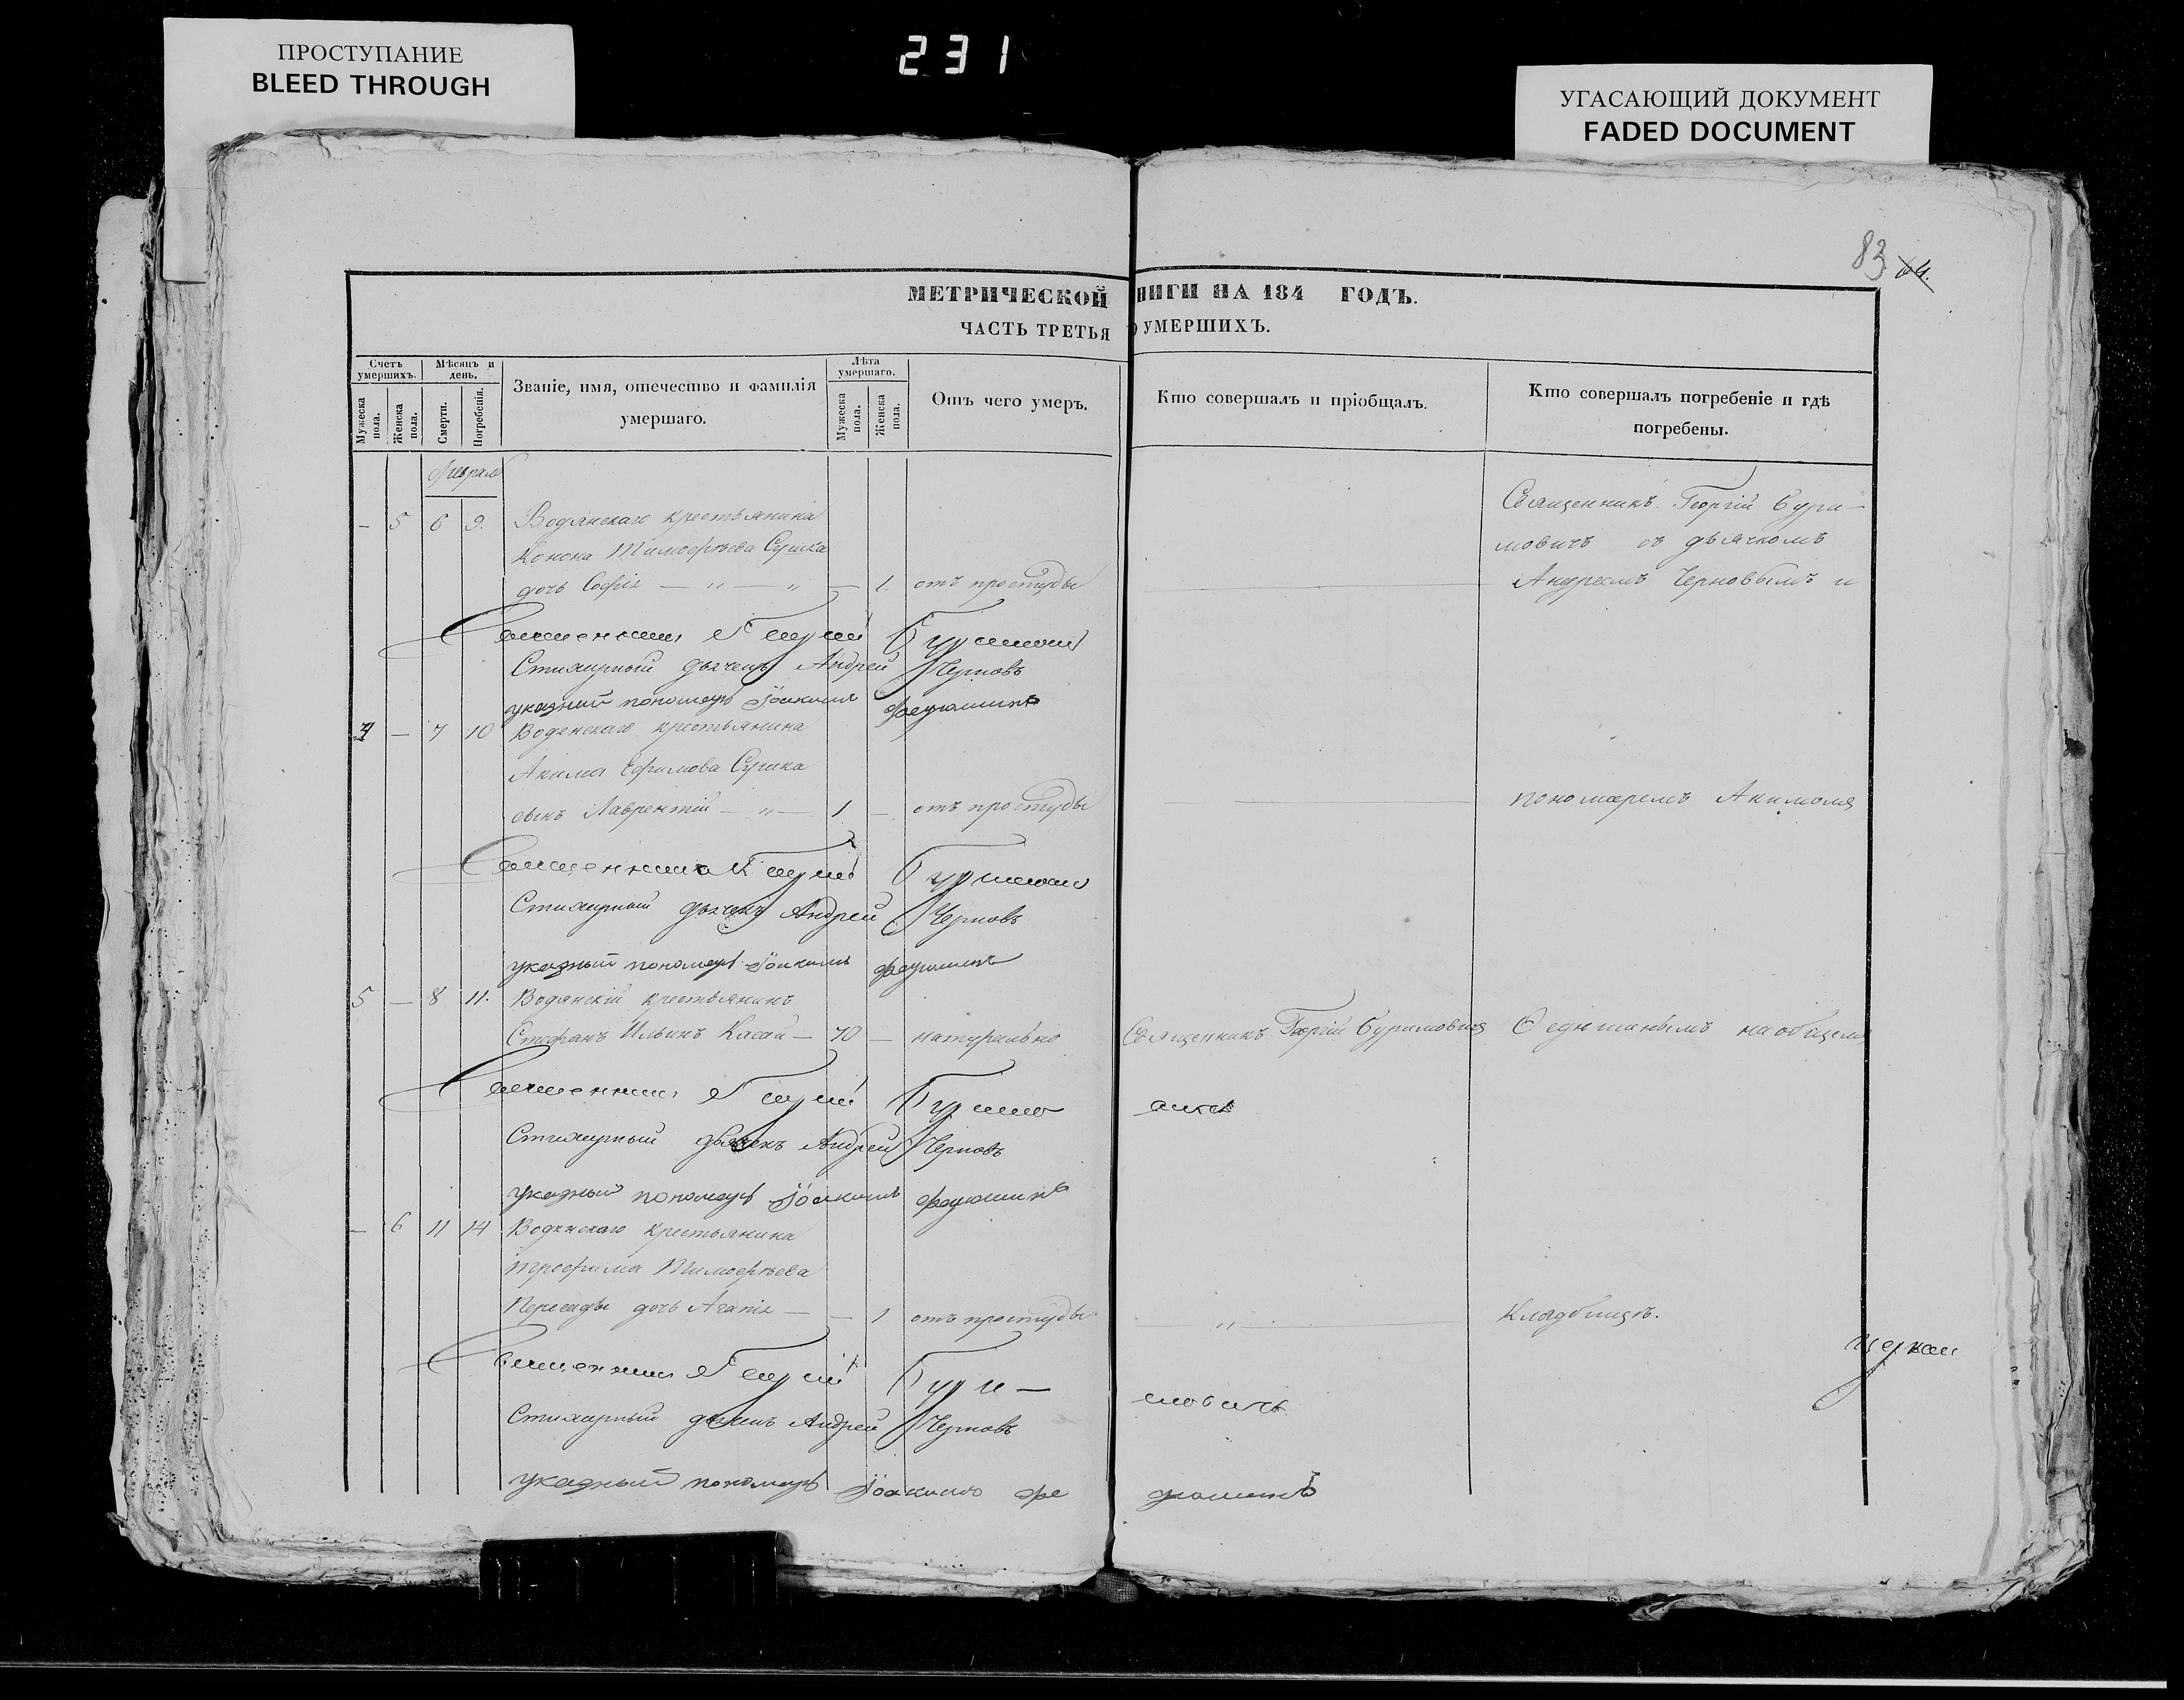 ПРОСТУПАНИЕ
BLEED THROUGH
231
УГАСАЮЩИЙ ДОКУМЕНТ
FADED DOCUMENT
83 64.
МЕТРИЧЕСКОЙ НИГИ НА 184 ГОДЪ.
ЧАСТЬ ТРЕТЬЯ О УМЕРШИХЪ.
Счетъ умершихъ.
Мѣсяцъ и день.
Званіе, имя, отечество и Фамилія умершаго.
Лѣта умершаго.
Отъ чего умеръ.
Кто совершалъ и пріобщалъ.
Кто совершалъ погребеніе и гдѣ погребены.
Мужеска пола.
Женска пола.
Смерти.
Погребенія.
Мужеска пола.
Женска пола.
Февраль
— 5 6 9. Водянскаго крестьянина
Конона Тимофѣева Сушка
дочь Софія — " — " — 1. отъ простуды
Священникъ Георгій Бури-
мовичъ съ дьячкомъ
Андреемъ Черновымъ и
Священникъ Георгій Буримовичъ
Стихарный дьячекъ Андрей Черновъ
указный пономарь Іоакимъ Федюшинъ
4 — 7 10 Водянскаго крестьянина
Акима Ефимова Сушка
сынъ Лаврентій — " — 1 — отъ простуды
пономаремъ Акимомъ
Священникъ Георгій Буримовичъ
Стихарный дьячекъ Андрей Черновъ
указный пономарь Іоакимъ Федюшинъ
5 — 8 11. Водянскій крестьянинъ
Стефанъ Ильинъ Касай — 70 — натурально Священникъ Георгій Буримовичъ Федюшинымъ на общемъ
Священникъ Георгій Буримо вичъ
Стихарный дьячекъ Андрей Черновъ
указный пономарь Іоакимъ Федюшинъ
— 6 11 14 Водянскаго крестьянина
Трофима Тимофѣева
Пересады дочь Агапія — — 1 отъ простуды — " — кладбищѣ.
Священникъ Георгій Бури— мовичъ
Стихарный дьячекъ Андрей Черновъ
указный пономарь Іоакимъ Фе дюшинъ